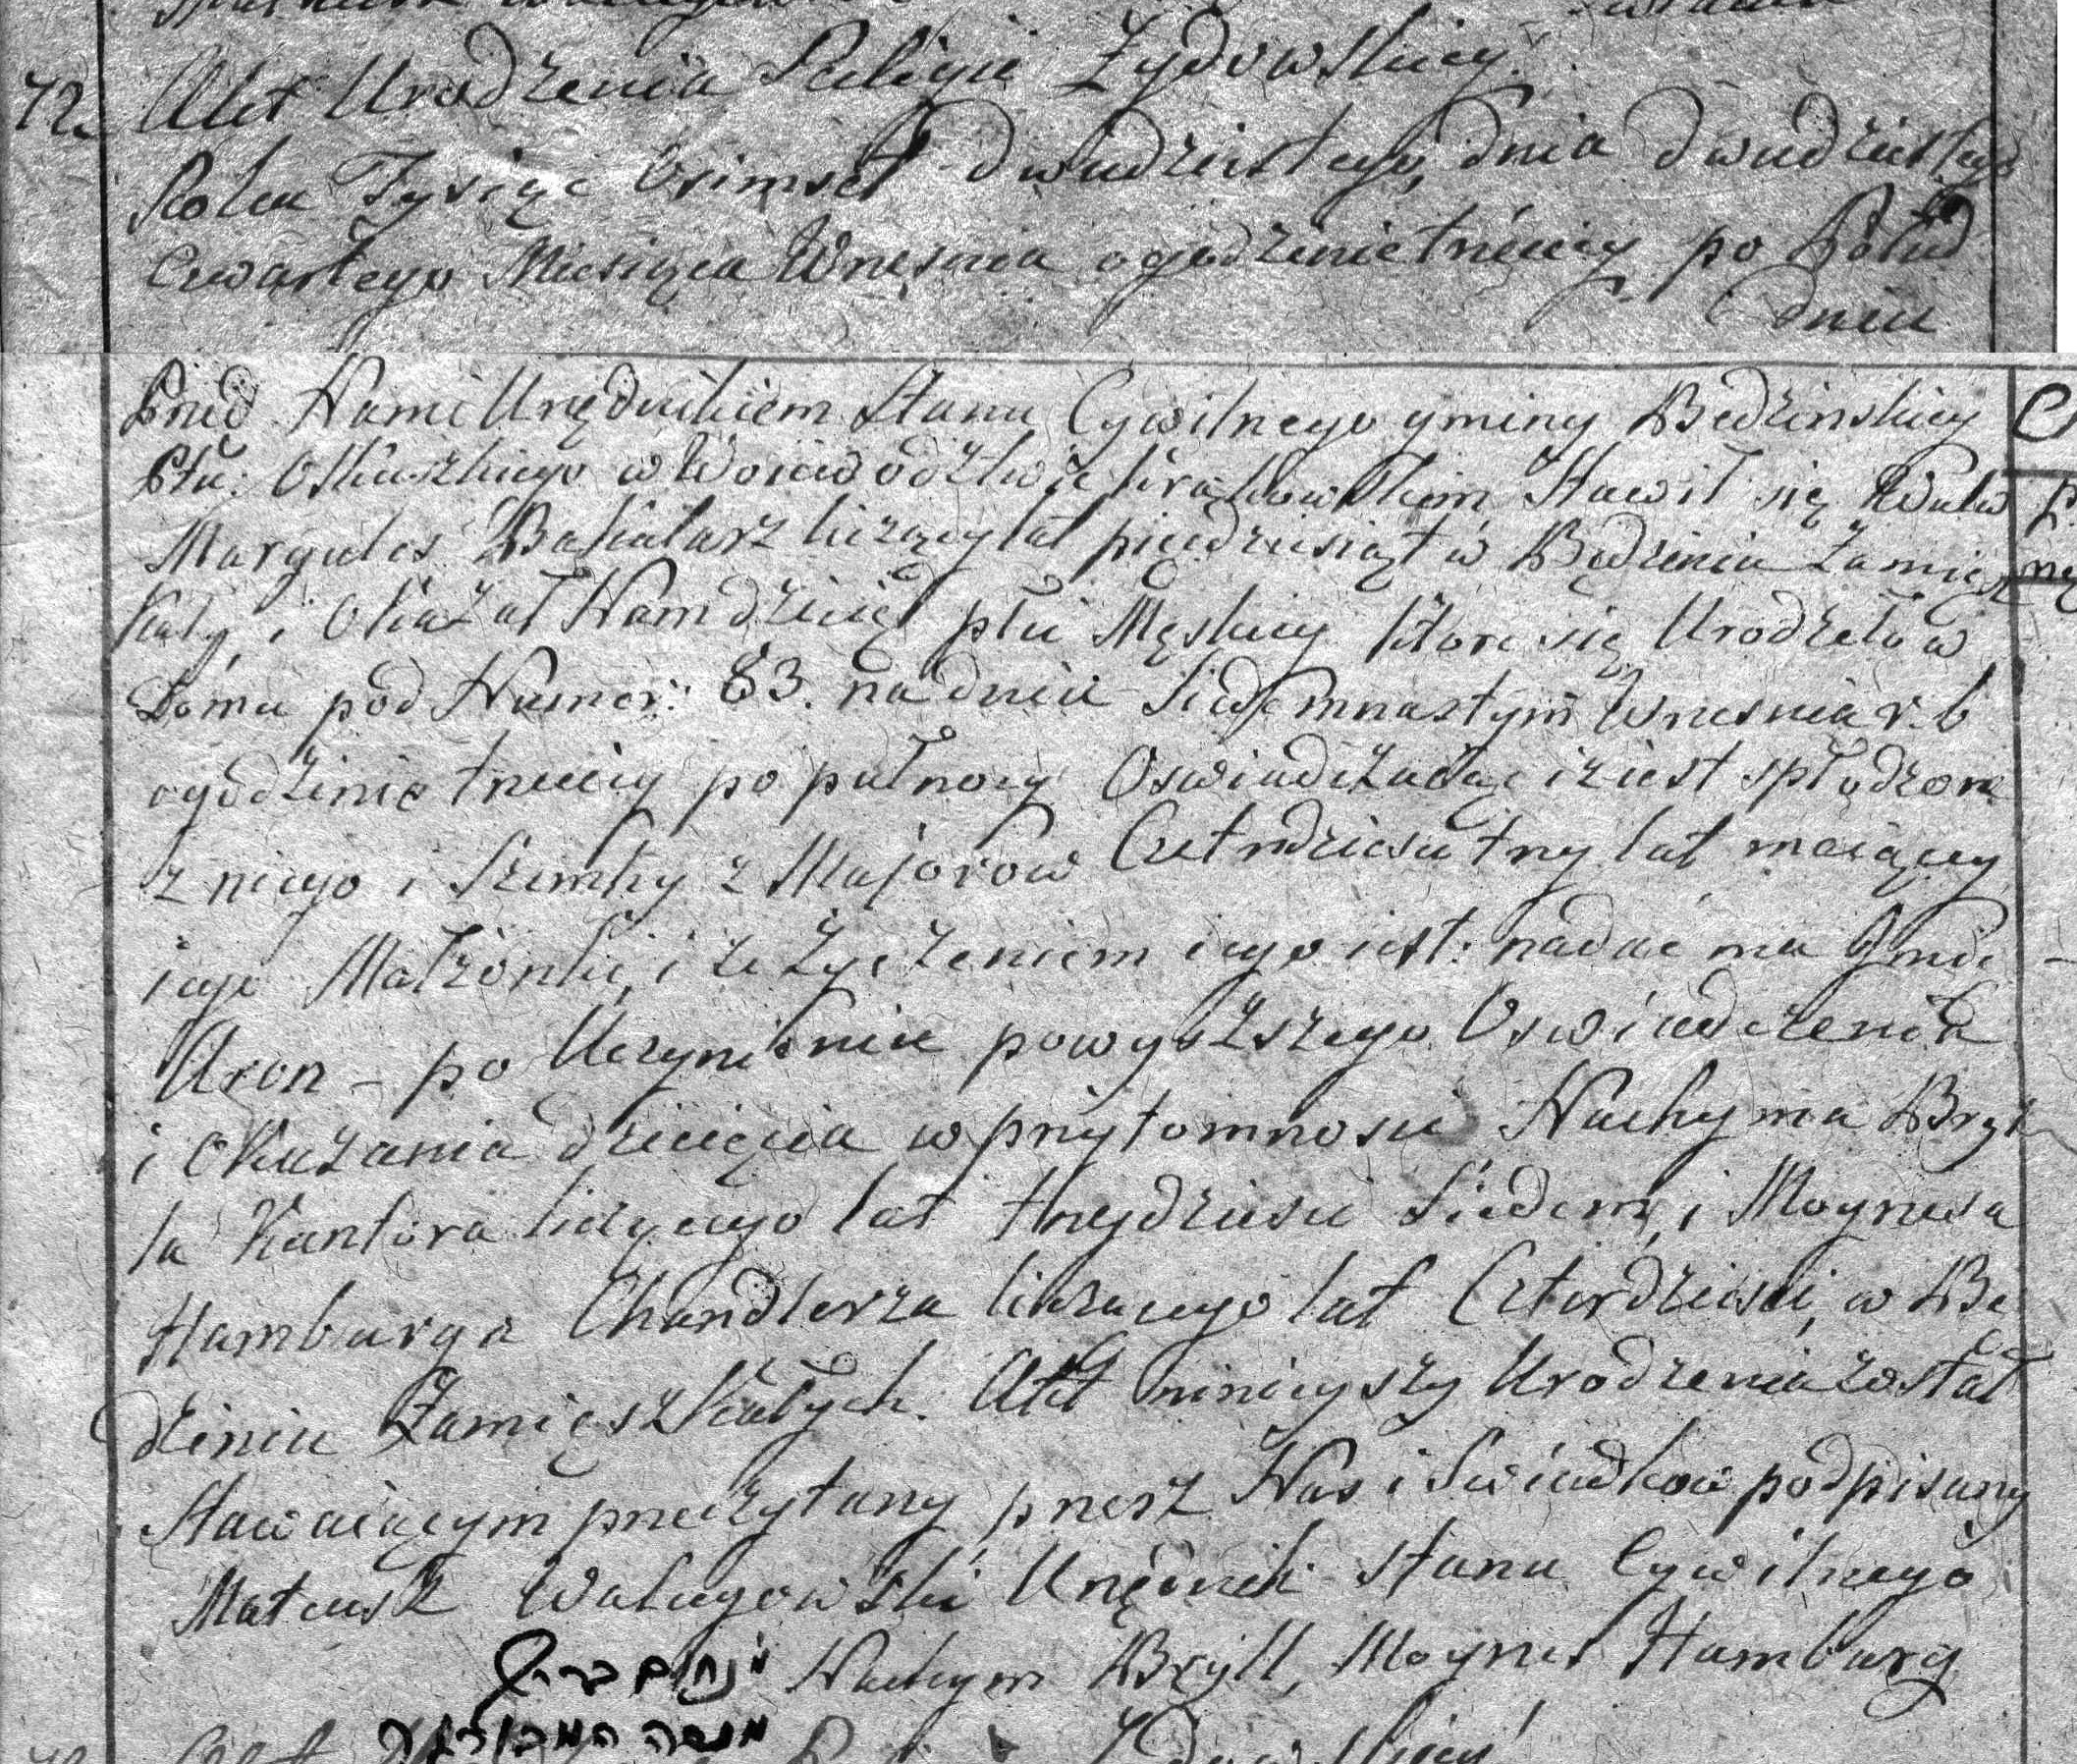 72. Akt Urodzenia Religii Żydowskiey
Roku Tysiąc Osimset dwudziestego, dnia dwudziestego
Czwartego Miesiąca Wrzesnia ogodzinie trzeciey po Połud
dniu
Przed Nami Urzędnikiem Stanu Cywilnego gminy Będzinskiey
Ptu: Olkuszkiego w Woiewodztwie Krakowskiem Stawił się Wulw
Margules Bakałarz liczący lat piędziesiąt w Będzinie Zamięsz
kały, i Okazał Nam dziecię płci Męskiey które się Urodzeło w
Domu pod Numer: 83. na dniu Siedmnastym Wrzesnia r. b
ogodzinie trzeciey po pułnocy Oswiadczaiąc iż iest spłodzone
z niego i Szimky z Majorow Czterdziescie trzy lat maiącey
iego Małżonki, i że Życzeniem iego iest: nadać mu Imie
Aron – po Uczynieniu powyższego Oswiadczenia
i Okazania dziecięcia w przytomnosci Nachyma Bryl
la Kantora liczącego lat trzydziesci Siedem, i Moynesa
Hamburga Chandlerza liczacego lat Czterdziesci, w Bę
dziniu Zamięszkałych. Akt ninieyszy Urodzenia został
Stawaiącym przeczytany przesz Nas i Swiadkow podpisany
Mateusz Walugowski Urzędnik Stanu Cywilnego
מנחם בריל Nachym Bryll, Moynes Hamburg
מנשה המבורגר